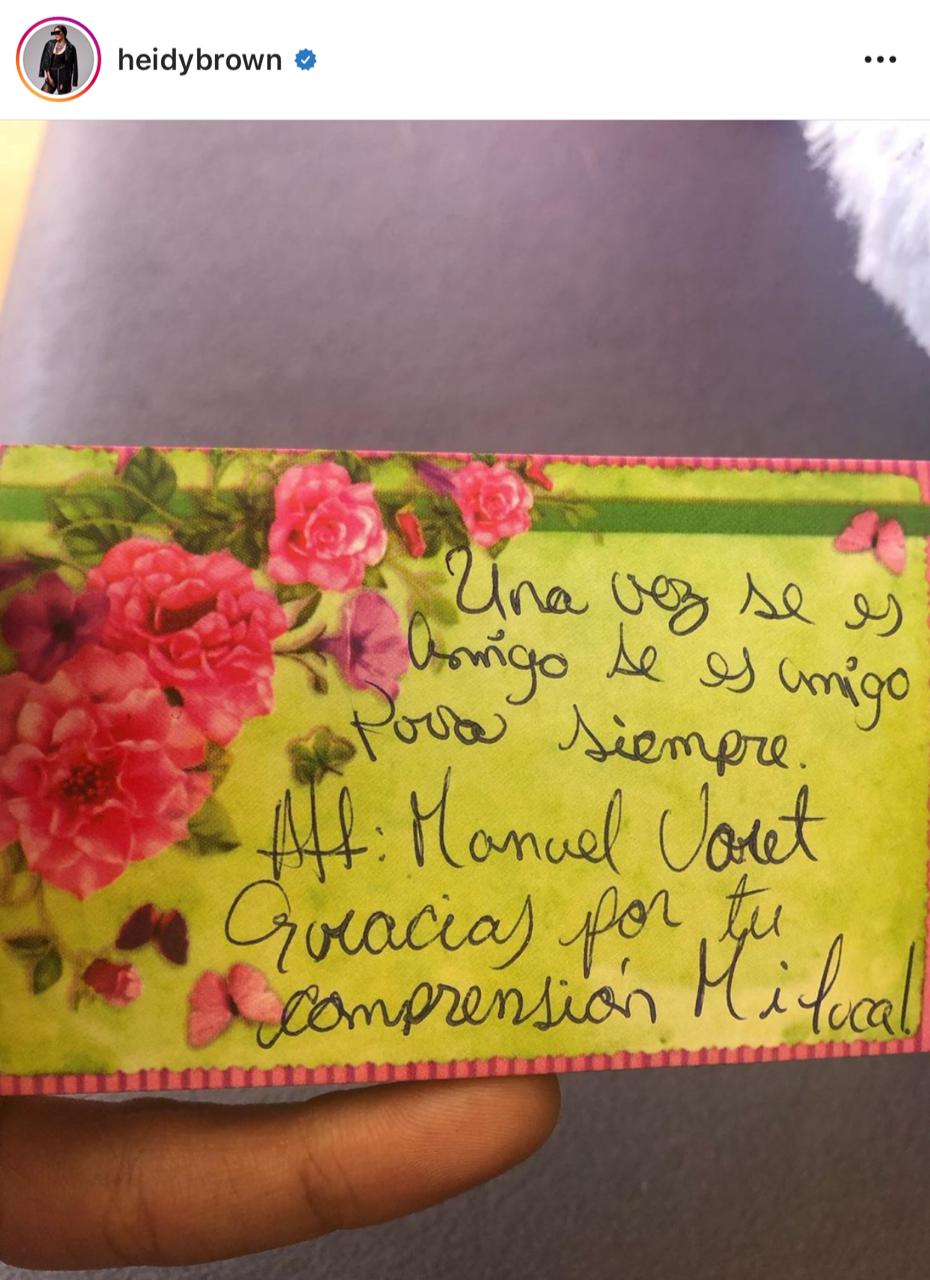 heidybrown
Una vez se es
Amigo se es amigo
Para siempre.
Att: Manuel Varet
Gracias por tu
comprensión Mi loca!